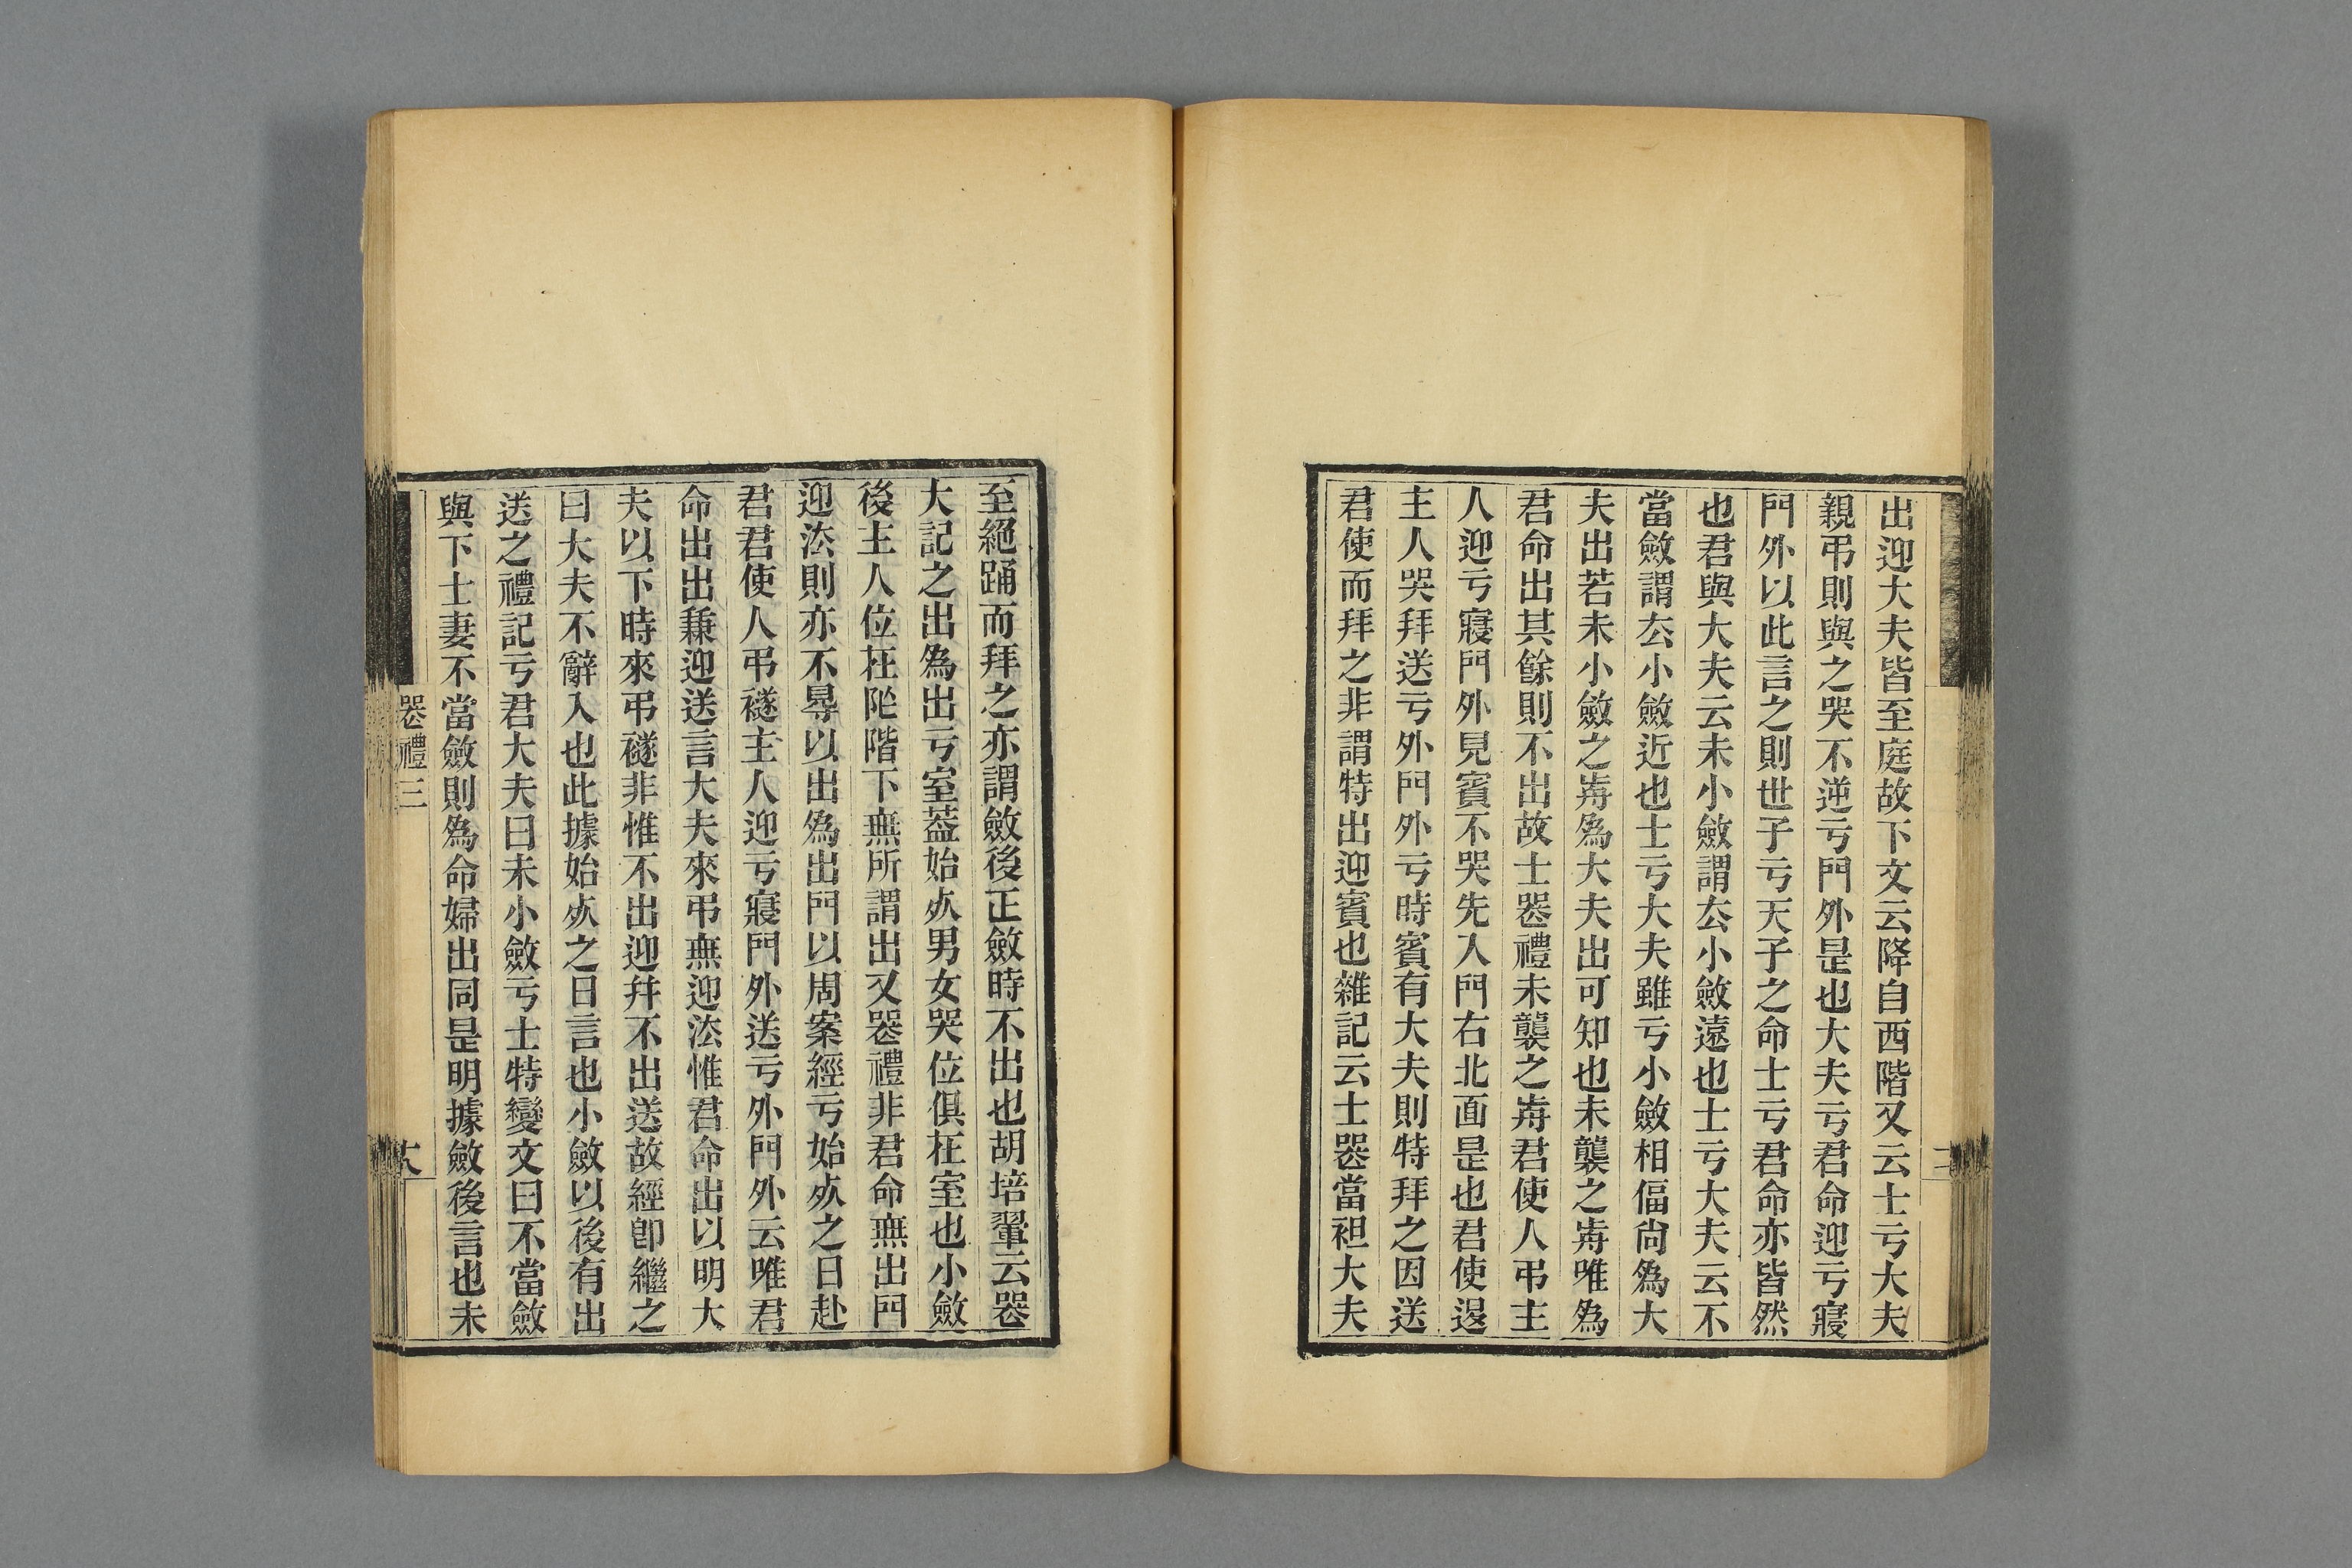 出迎大夫皆至庭故下文云降自西階又云士亏大夫
親弔則與之哭不逆亏門外是也大夫亏君命迎亏寢
門外以此言之則世子亏天子之命士亏君命亦皆然
也君與大夫云未小斂謂厺小斂遠也士亏大夫云不
當斂謂厺小斂近也士亏大夫雖亏小斂相偪尙爲大
夫出若未小斂之歬爲大夫出可知也未襲之歬唯爲
君命出其餘則不出故士喪禮未襲之歬君使人弔主
人迎亏寢門外見賓不哭先入門右北面是也君使退
主人哭拜送亏外門外亏時賓有大夫則特拜之因送
君使而拜之非謂特出迎賓也雜記云士喪當袒大夫
至絕踊而拜之亦謂斂後正斂時不出也胡培翬云喪
大記之出爲出亏室葢始𣦸男女哭位俱在室也小斂
後主人位在阼階下無所謂出又喪禮非君命無出門
迎法則亦不㝵以出爲出門以周案經亏始𣦸之日赴
君君使人弔襚主人迎亏寢門外送亏外門外云唯君
命出出兼迎送言大夫來弔無迎法惟君命出以明大
夫以下時來弔襚非惟不出迎幷不出送故經卽繼之
曰大夫不辭入也此據始𣦸之日言也小斂以後有出
送之禮記亏君大夫曰未小斂亏士特變文曰不當斂
與下士妻不當斂則爲命婦出同是明據斂後言也未
喪禮三